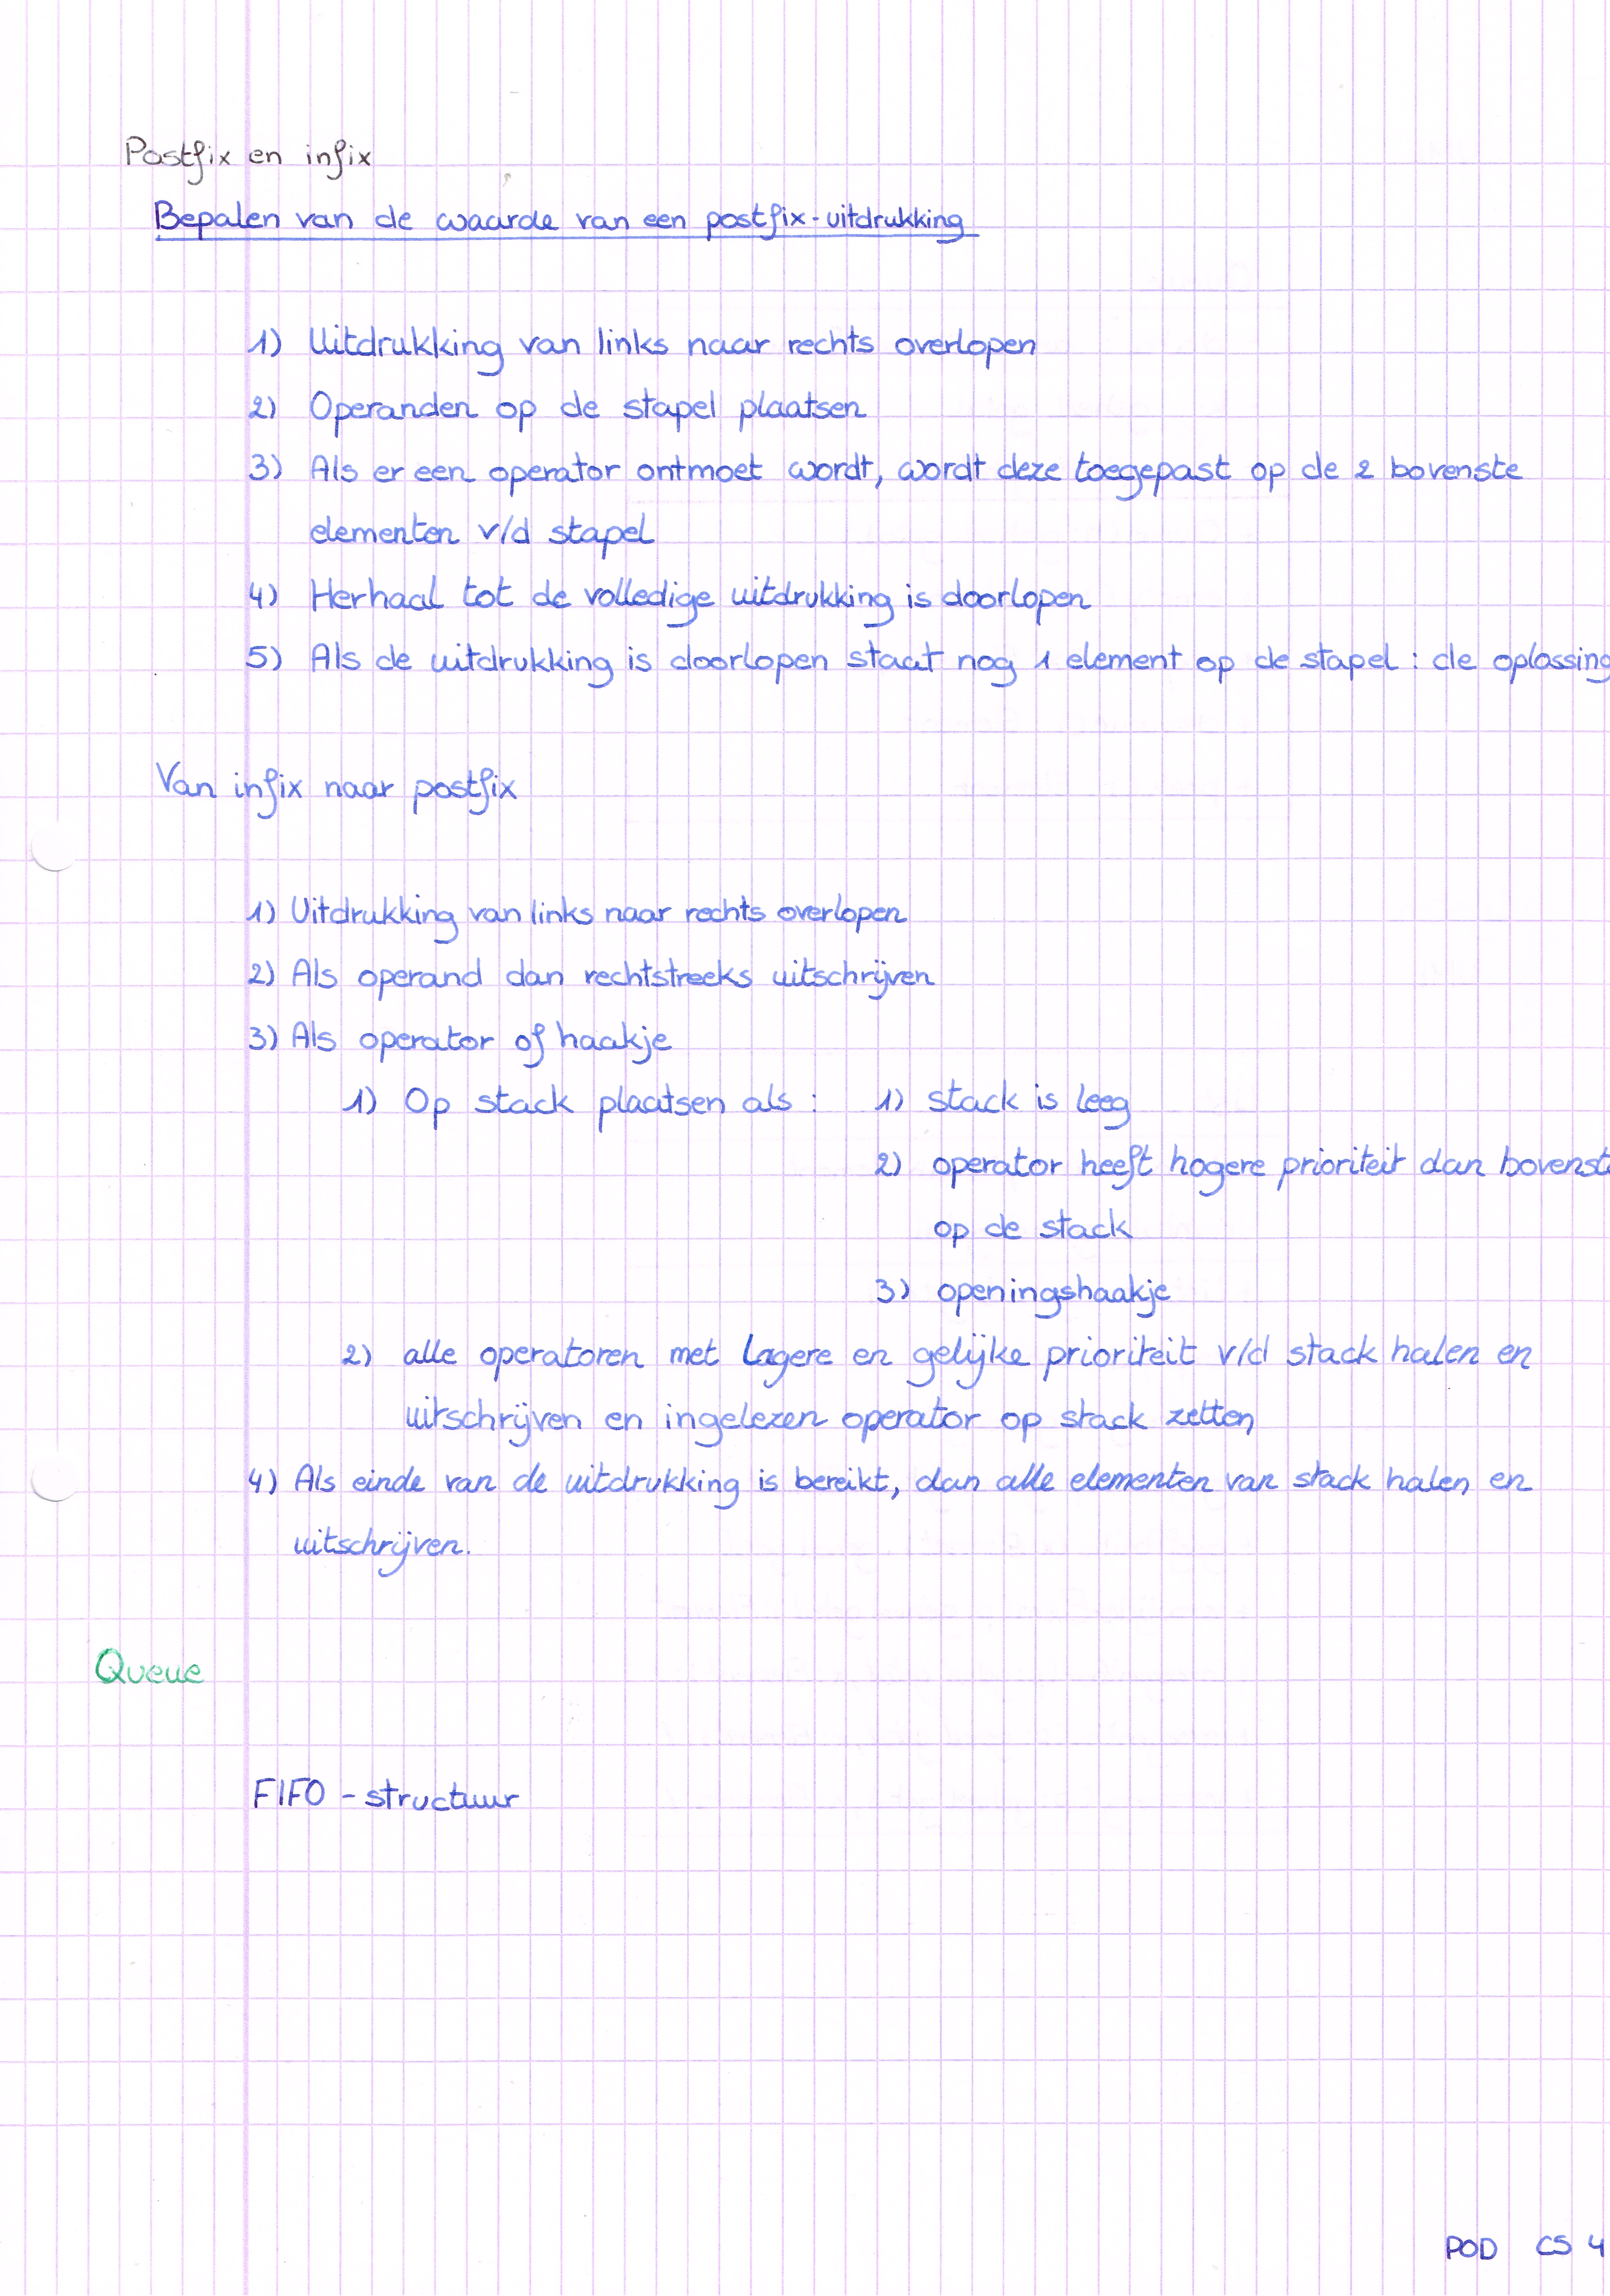 Postfix en infix
Bepalen van de waarde van een postfix-uitdrukking
1) Uitdrukking van links naar rechts overlopen
2) Operanden op de stapel plaatsen
3) Als er een operator ontmoet wordt, wordt deze toegepast op de 2 bovenste
elementen v/d stapel
4) Herhaal tot de volledige uitdrukking is doorlopen
5) Als de uitdrukking is doorlopen staat nog 1 element op de stapel : de oplossing
Van infix naar postfix
1) Uitdrukking van links naar rechts overlopen
2) Als operand dan rechtstreeks uitschrijven
3) Als operator of haakje
1) Op stack plaatsen als : 1) stack is leeg
2) operator heeft hogere prioriteit dan bovenste
op de stack
3) openingshaakje
2) alle operatoren met lagere en gelijke prioriteit v/d stack halen en
uitschrijven en ingelezen operator op stack zetten
4) Als einde van de uitdrukking is bereikt, dan alle elementen van stack halen en
uitschrijven.
Queue
FIFO - structuur
POD CS 4